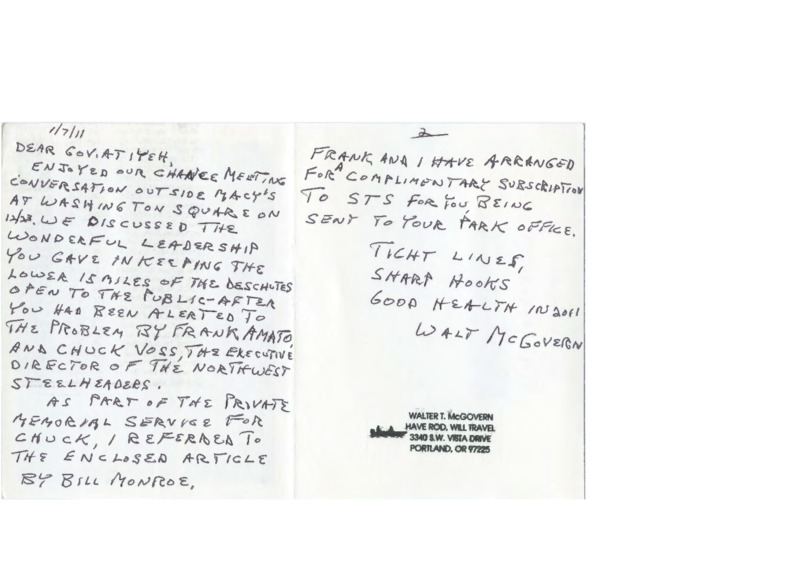 1/7/11
DEAR GOV. ATIYEH,
ENJOYED OUR CHANCE MEETING
CONVERSATION OUTSIDE MACY'S
AT WASHINGTON SQUARE ON
12/28. WE DISCUSSED THE
WONDERFUL LEADERSHIP
YOU GAVE IN KEEPING THE
LOWER 15 MILES OF THE DESCHUTES
OPEN TO THE PUBLIC-AFTER
YOU HAD BEEN ALERTED TO
THE PROBLEM BY FRANK AMATO,
AND CHUCK VOSS, THE EXECUTIVE
DIRECTOR OF THE NORTHWEST
STEELHEADERS.
AS PART OF THE PRIVATE
MEMORIAL SERVICE FOR
CHUCK, I REFERRED TO
THE ENCLOSED ARTICLE
BY BILL MONROE.
2
FRANK AND I HAVE ARRANGED
FOR A COMPLIMENTARY SUBSCRIPTION
TO STS FOR YOU, BEING
SENT TO YOUR PARK OFFICE.
TIGHT LINES,
SHARP HOOKS
GOOD HEALTH IN 2011
WALT McGOVERN
WALTER T. McGOVERN
HAVE ROD, WILL TRAVEL
3340 S.W. VISTA DRIVE
PORTLAND, OR 97225